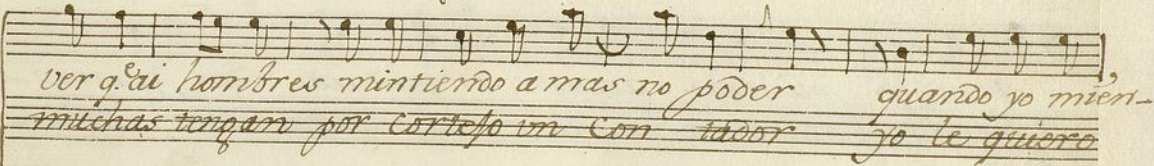 ver q.e ai hombres mintiendo a mas no poder quando yo mien-
muchas tengan por corteso un con tador yo le quiero